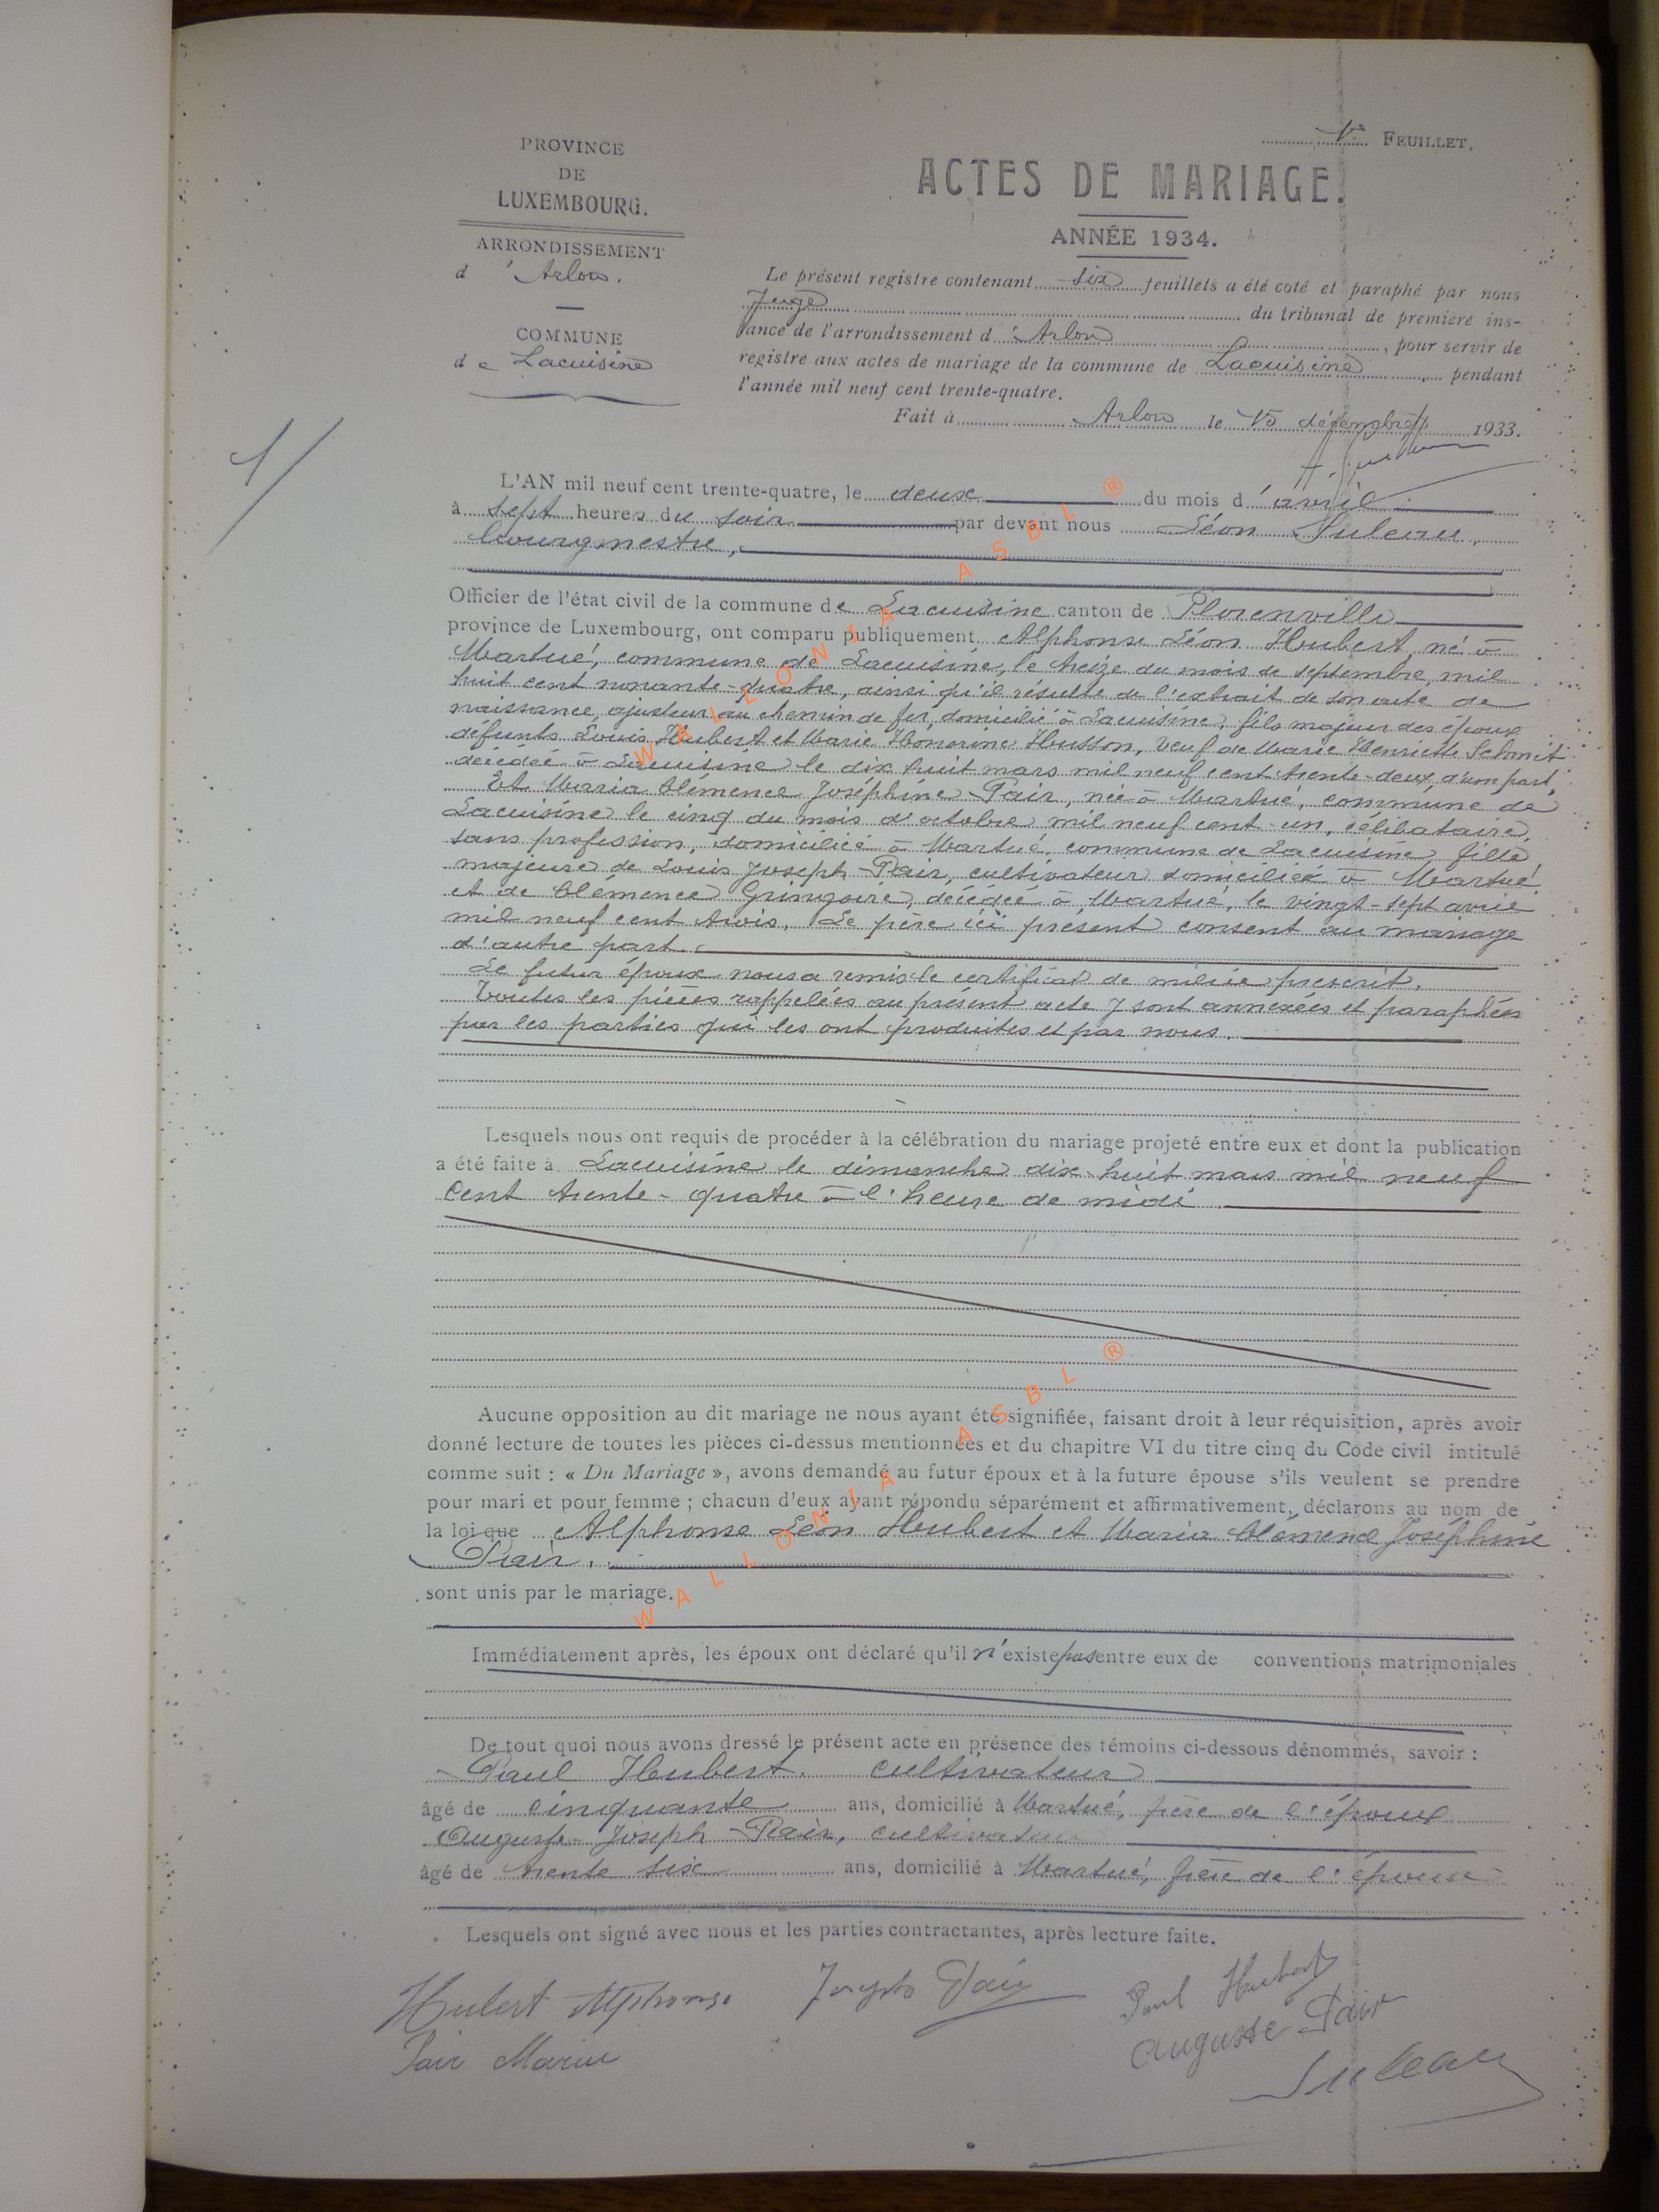 FEUILLET.
PROVINCE
DE
LUXEMBOURG.
ARRONDISSEMENT
d'Arlon.
COMMUNE
de Lacuisine
ACTES DE MARIAGE.
ANNÉE 1934.
Le présent registre contenant six feuillets a été coté et paraphé par nous
Juge du tribunal de première ins-
tance de l'arrondissement d'Arlon, pour servir de
registre aux actes de mariage de la commune de Lacuisine, pendant
l'année mil neuf cent trente-quatre.
Fait à Arlon le 15 décembre 1933.
1/
L'AN mil neuf cent trente-quatre, le deux du mois d'avril
à sept heures du soir par devant nous Léon Suleau,
bourgmestre,
Officier de l'état civil de la commune de Lacuisine canton de Florenville
province de Luxembourg, ont comparu publiquement Alphonse Léon Hubert, né à
Martué, commune de Lacuisine, le treize du mois de septembre mil
huit cent nonante-quatre, ainsi qu'il résulte de l'extrait de son acte de
naissance, ajusteur au chemin de fer, domicilié à Lacuisine, fils majeur des époux
défunts Louis Hubert et Marie Honorine Husson, veuf de Marie Henriette Schmit
décédée à Lacuisine le dix huit mars mil neuf cent trente-deux, d'une part,
Et Maria Clémence Joséphine Pair, née à Martué, commune de
Lacuisine le cinq du mois d'octobre mil neuf cent un, célibataire,
sans profession, domiciliée à Martué, commune de Lacuisine, fille
majeure de Louis Joseph Pair, cultivateur domicilié à Martué
et de Clémence Gringoire, décédée à Martué, le vingt-sept avril
mil neuf cent trois. Le père ici présent consent au mariage
d'autre part.
Le futur époux nous a remis le certificat de milice prescrit.
Toutes les pièces rappelées au présent acte y sont annexées et paraphées
par les parties qui les ont produites et par nous.
Lesquels nous ont requis de procéder à la célébration du mariage projeté entre eux et dont la publication
a été faite à Lacuisine le dimanche dix-huit mars mil neuf
cent trente-quatre à l'heure de midi
Aucune opposition au dit mariage ne nous ayant été signifiée, faisant droit à leur réquisition, après avoir
donné lecture de toutes les pièces ci-dessus mentionnées et du chapitre VI du titre cinq du Code civil intitulé
comme suit : « Du Mariage », avons demandé au futur époux et à la future épouse s'ils veulent se prendre
pour mari et pour femme ; chacun d'eux ayant répondu séparément et affirmativement, déclarons au nom de
la loi que Alphonse Léon Hubert et Maria Clémence Joséphine
Pair.
sont unis par le mariage.
Immédiatement après, les époux ont déclaré qu'il n'existe pas entre eux de conventions matrimoniales
De tout quoi nous avons dressé le présent acte en présence des témoins ci-dessous dénommés, savoir :
Paul Hubert, cultivateur
âgé de cinquante ans, domicilié à Martué, frère de l'époux
Auguste Joseph Pair, cultivateur
âgé de trente six ans, domicilié à Martué, frère de l'épouse
Lesquels ont signé avec nous et les parties contractantes, après lecture faite.
Hubert Alphonse
Joseph Pair
Paul Hubert
Pair Maria
Auguste Pair
Suleau
WALLONIA ASBL ®
WALLONIA ASBL ®